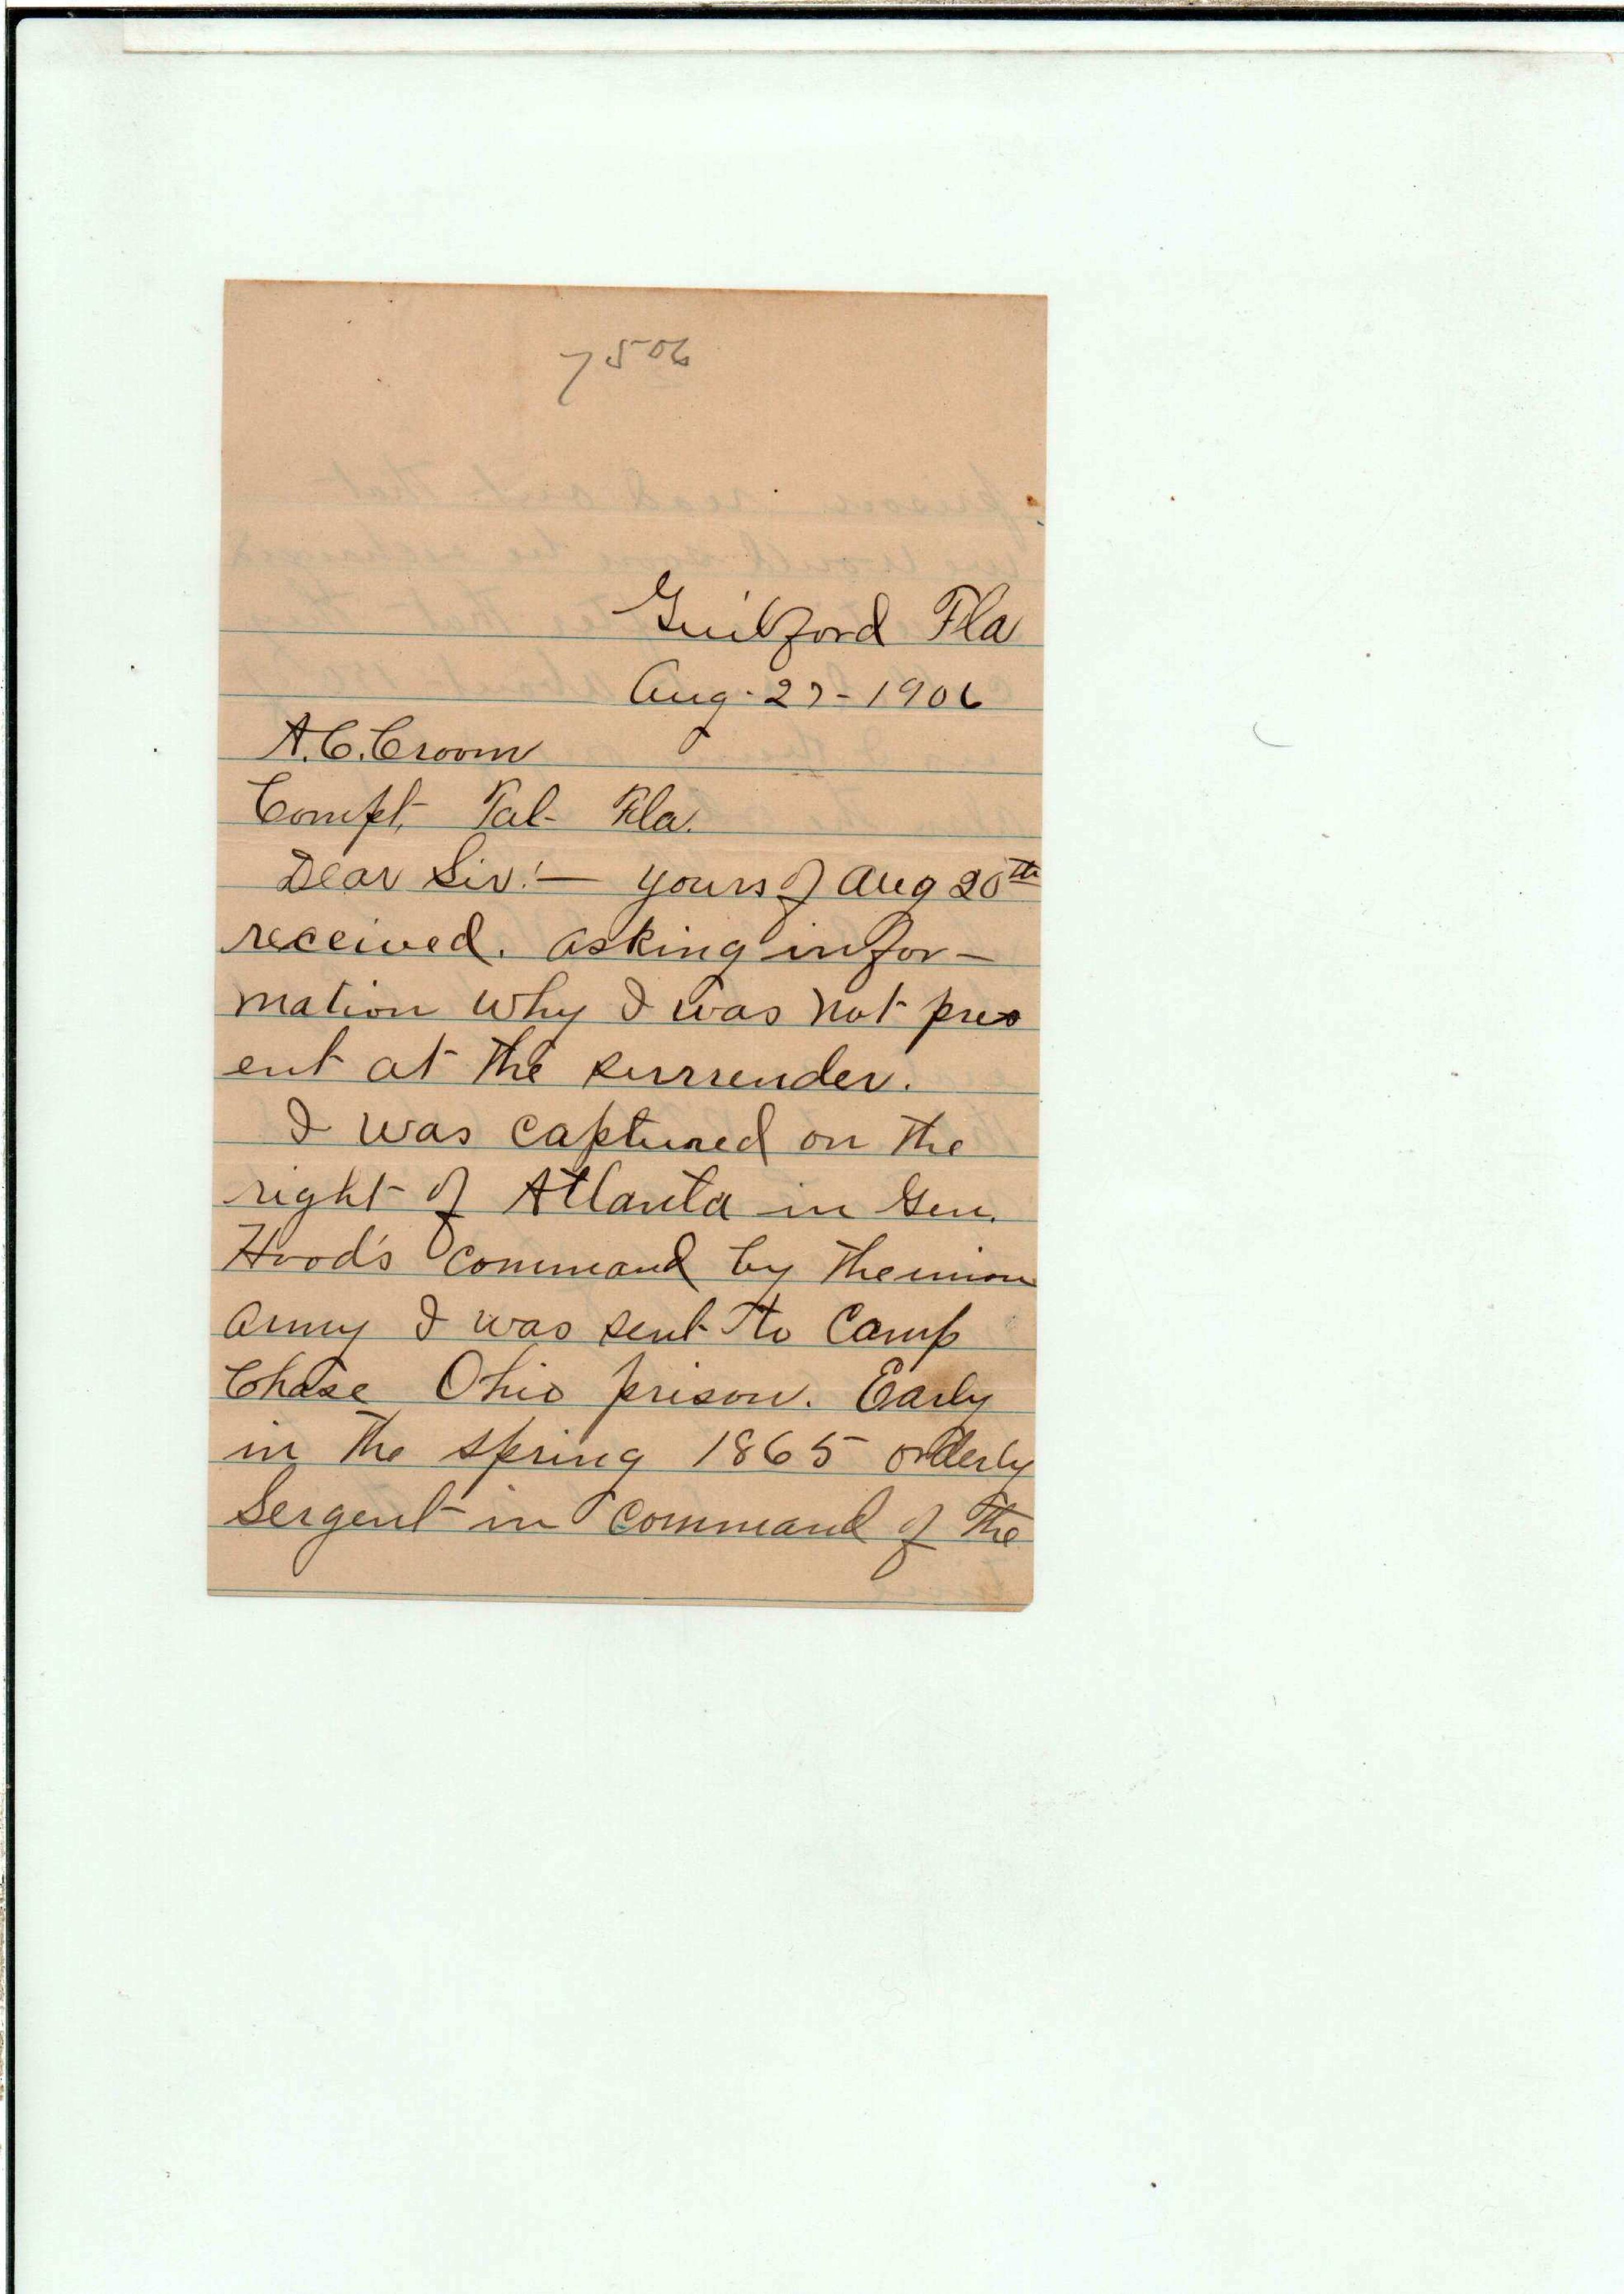 7506
Guilford Fla
Aug-27-1906
A.C. Croom
Compt. Tal- Fla.
Dear Sir:— yours of Aug 20th
received. asking infor-
mation why I was not pres
ent at the surrender.
I was captured on the
right of Atlanta in Gen.
Hood's command by the union
army I was sent to Camp
Chase Ohio prison. Early
in the spring 1865 orderly
Sergent in command of the